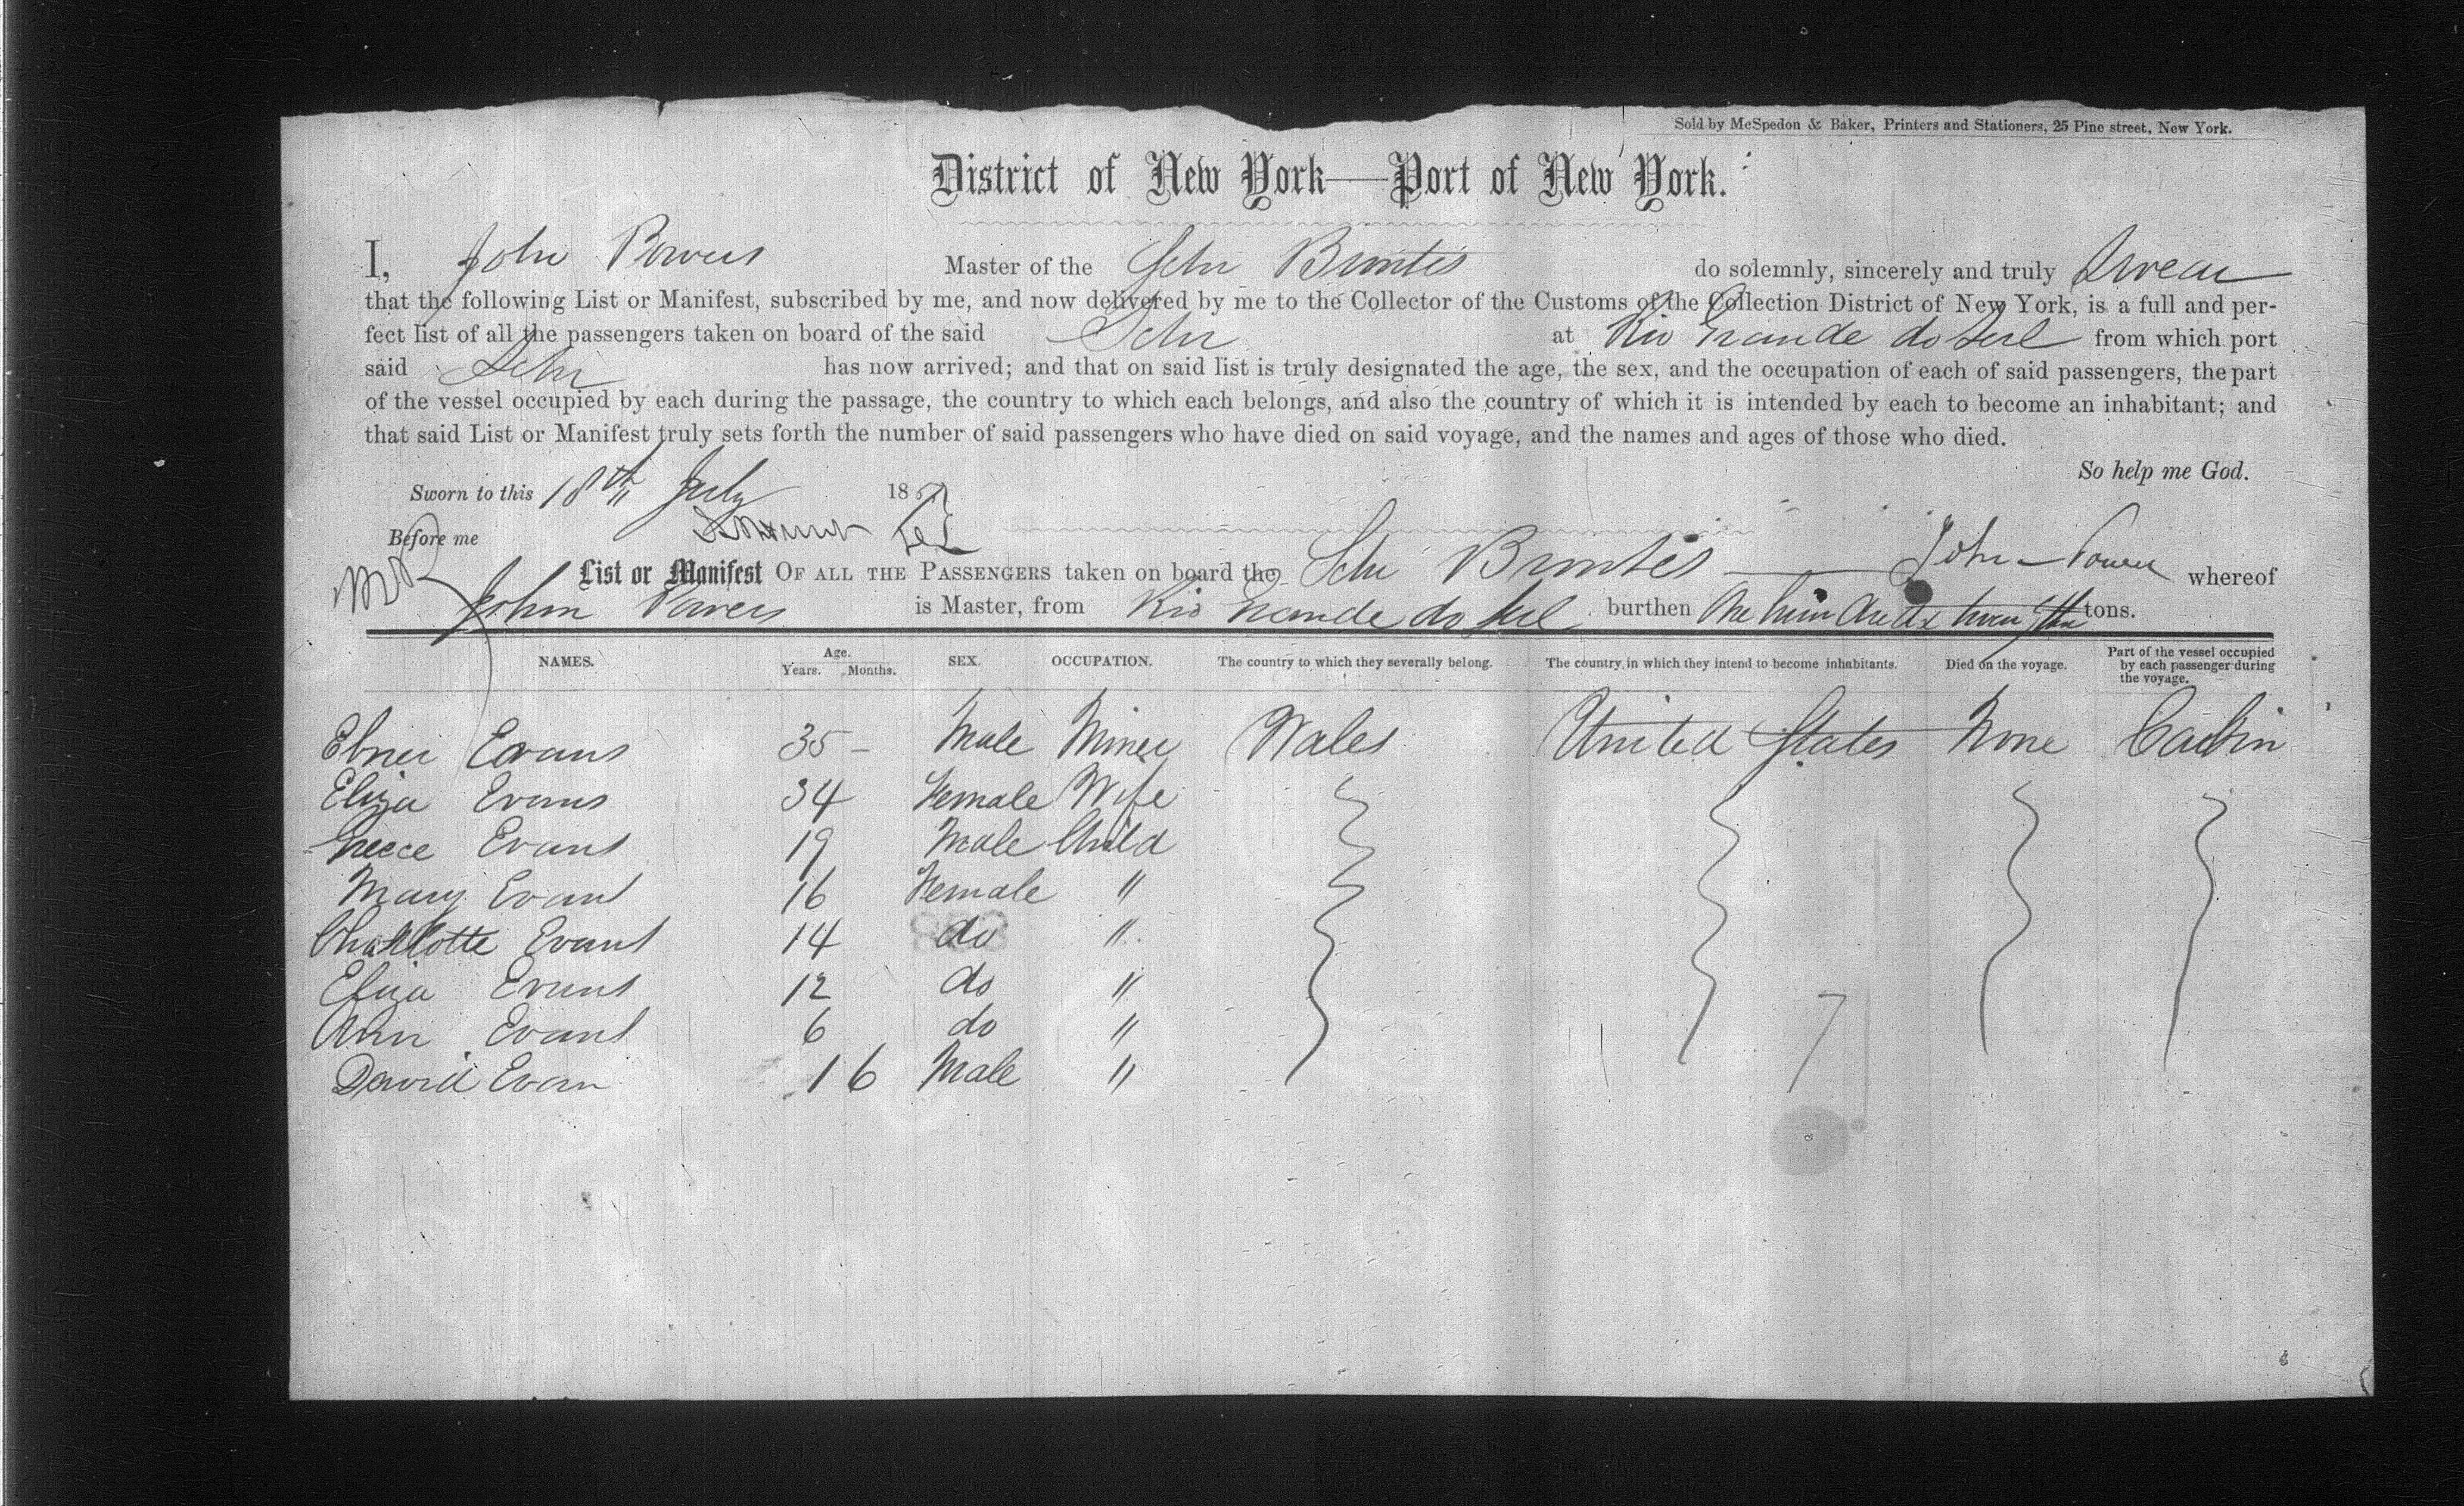 Sold by McSpedon & Baker, Printers and Stationers, 25 Pine street, New York.
District of New York—Port of New York.
I, John Powers Master of the Schr Brontes do solemnly, sincerely and truly Swear
that the following List or Manifest, subscribed by me, and now delivered by me to the Collector of the Customs of the Collection District of New York, is a full and per-
fect list of all the passengers taken on board of the said Schr at Rio Grande do Sul from which port
said Schr has now arrived; and that on said list is truly designated the age, the sex, and the occupation of each of said passengers, the part
of the vessel occupied by each during the passage, the country to which each belongs, and also the country of which it is intended by each to become an inhabitant; and
that said List or Manifest truly sets forth the number of said passengers who have died on said voyage, and the names and ages of those who died.
So help me God.
Sworn to this 18th July 18
Before me
John Power
List or Manifest OF ALL THE PASSENGERS taken on board the Schr Brontes whereof
John Powers is Master, from Rio Grande do Sul burthen One hundred & tons.
NAMES. Age. Years. Months. SEX. OCCUPATION. The country to which they severally belong. The country in which they intend to become inhabitants. Died on the voyage. Part of the vessel occupied by each passenger during the voyage.
Ebner Evans 35 - Male Miner Wales United States None Cabin
Eliza Evans 34 Female Wife
Greece Evans 19 Male Child
Mary Evans 16 Female "
Charlotte Evans 14 do "
Eliza Evans 12 do "
Ann Evans 6 do "
David Evan 1 6 Male "
7